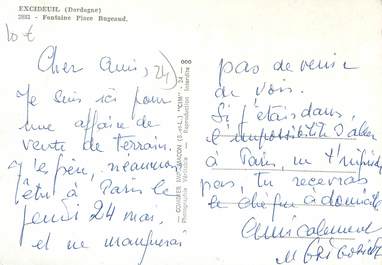 EXCIDEUIL (Dordogne)
2883 - Fontaine Place Bugeaud.
10 €
Cher Ami,
Je suis ici pour
une affaire de
vente de terrain.
J'espère, néanmoins
être à Paris le
jeudi 24 mai,
et ne manquerai
pas de venir
te voir.
Si j'étais dans
l'impossibilité d'aller
à Paris, un
pas, tu recevras
le chèque à domicile
Amicalement
COMBIER IMP. MACON (S.-et-L.) "CIM"
Photographie Véritable - Reproduction Interdite